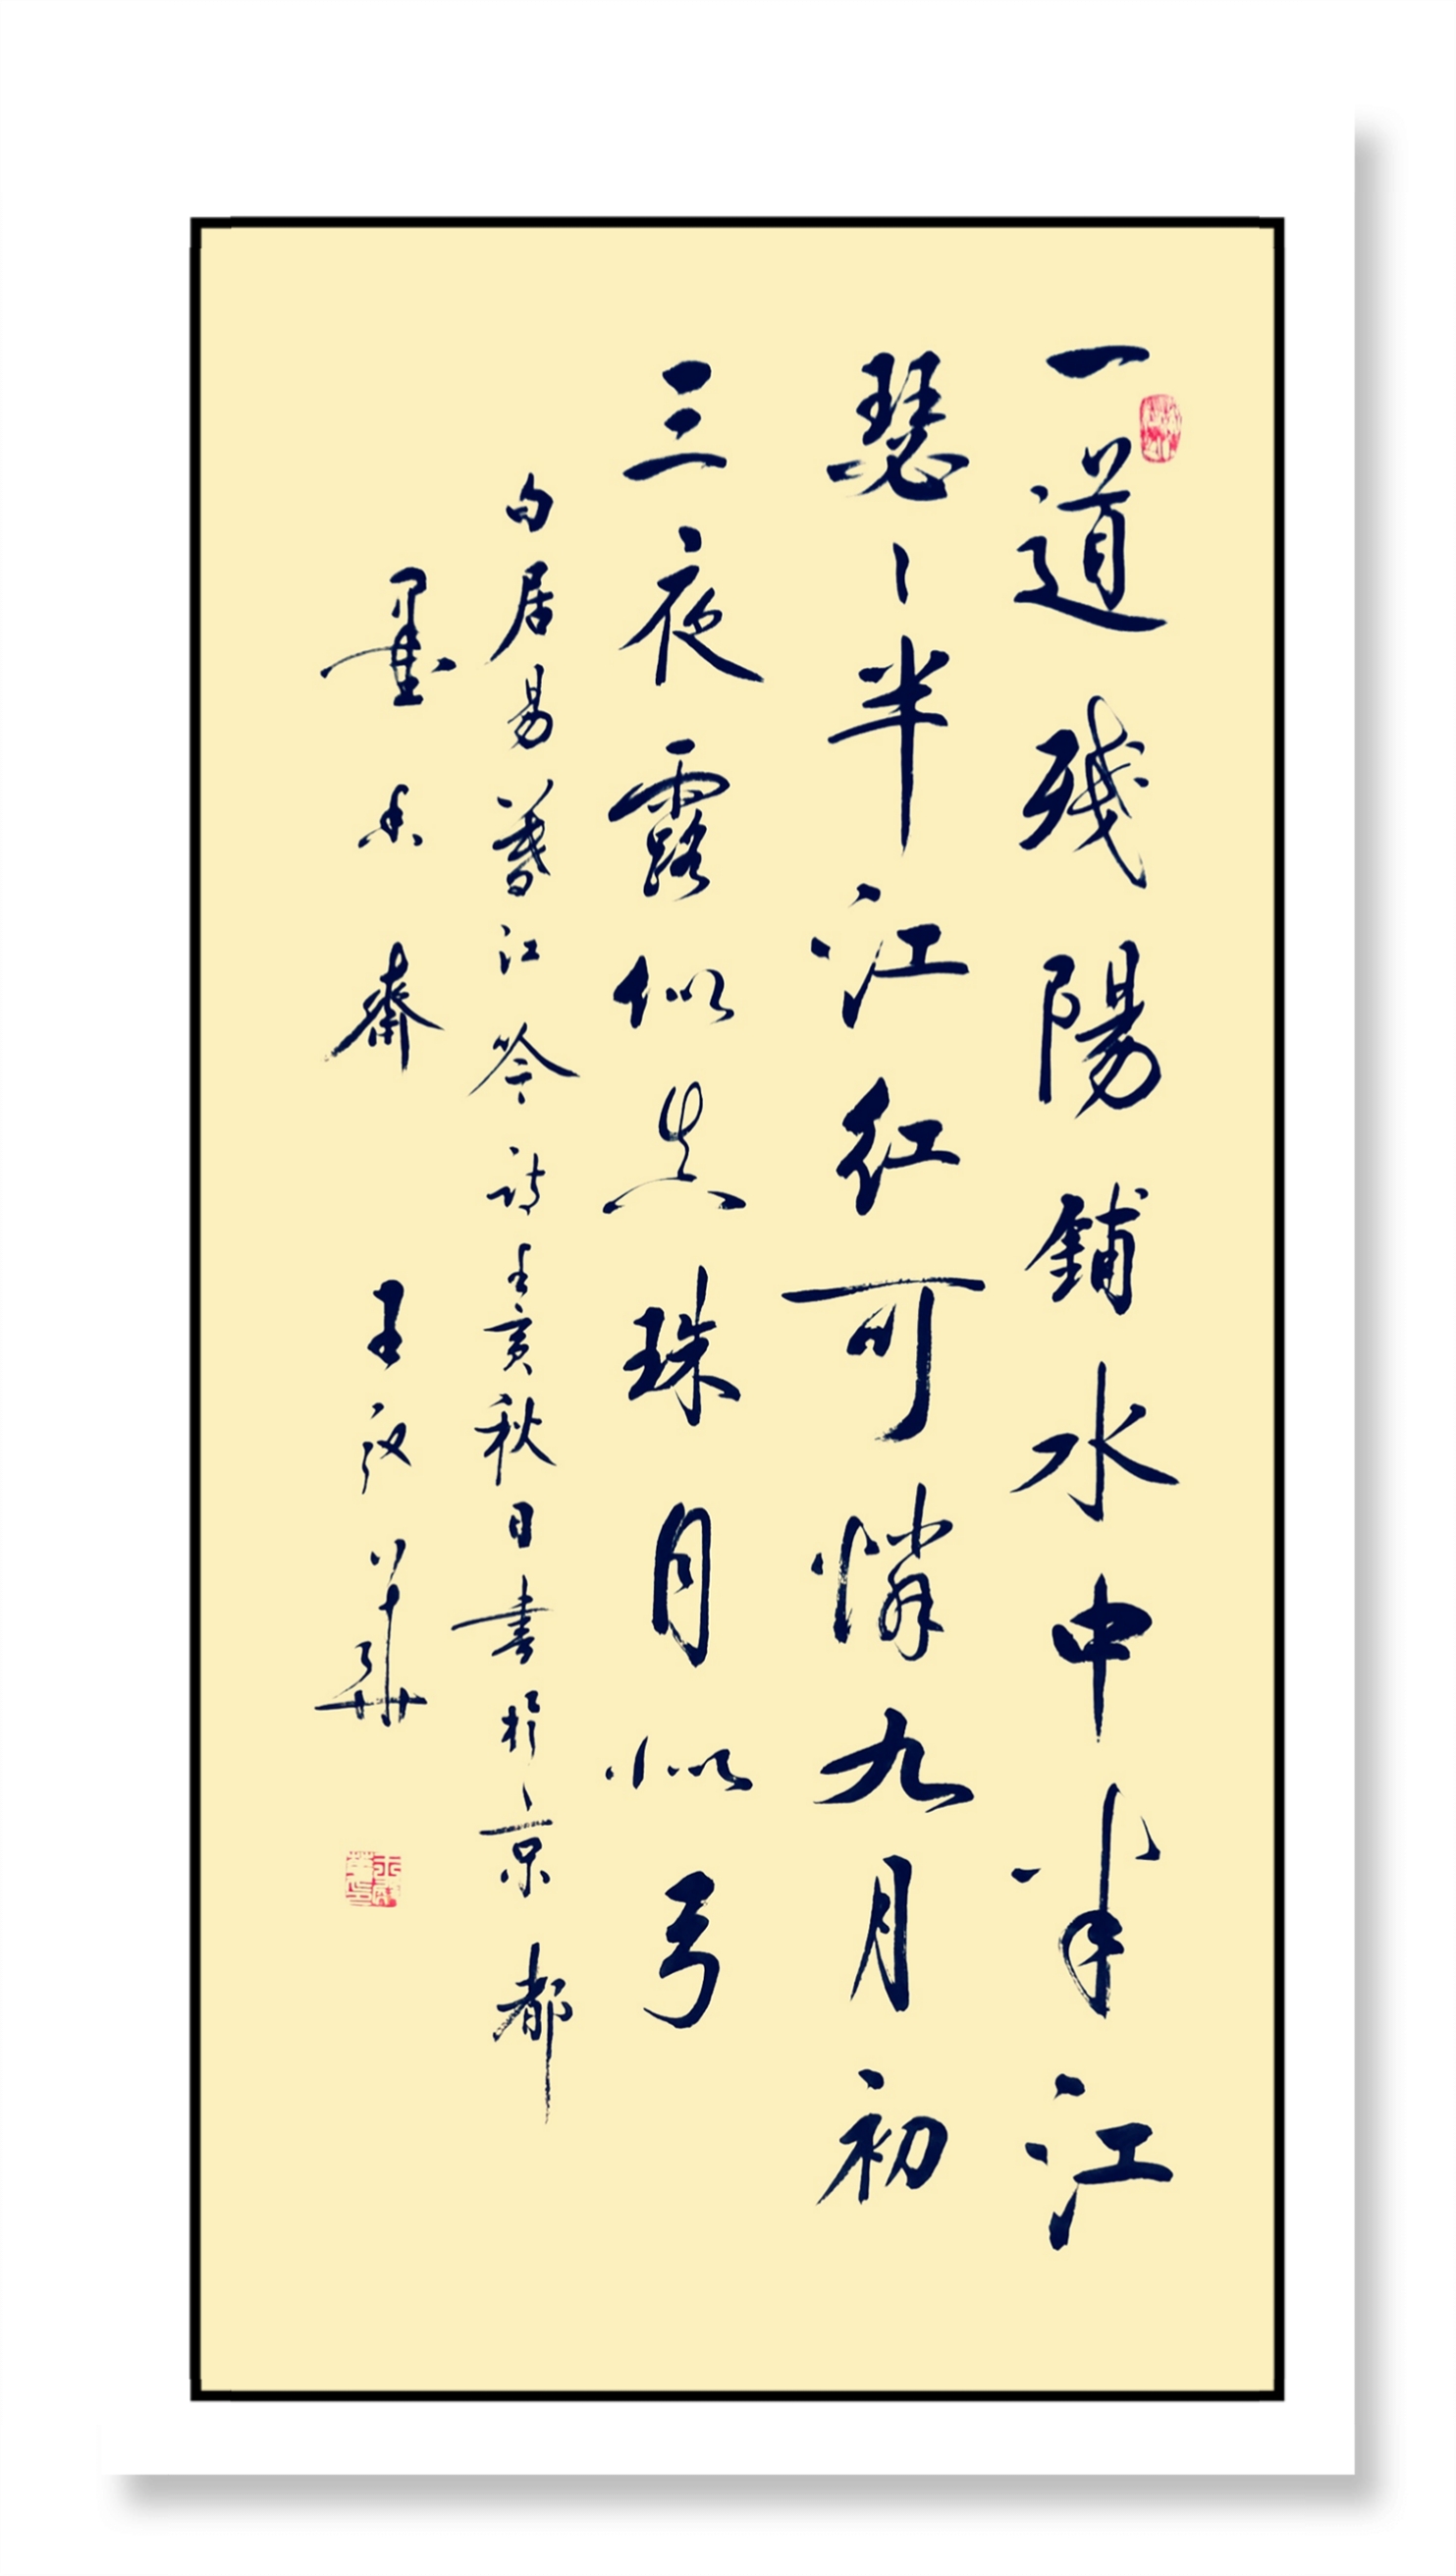 一道残陽鋪水中半江
瑟々半江红可憐九月初
三夜露似真珠月似弓
白居易暮江吟诗亥秋日書於京都
墨香齋 王華